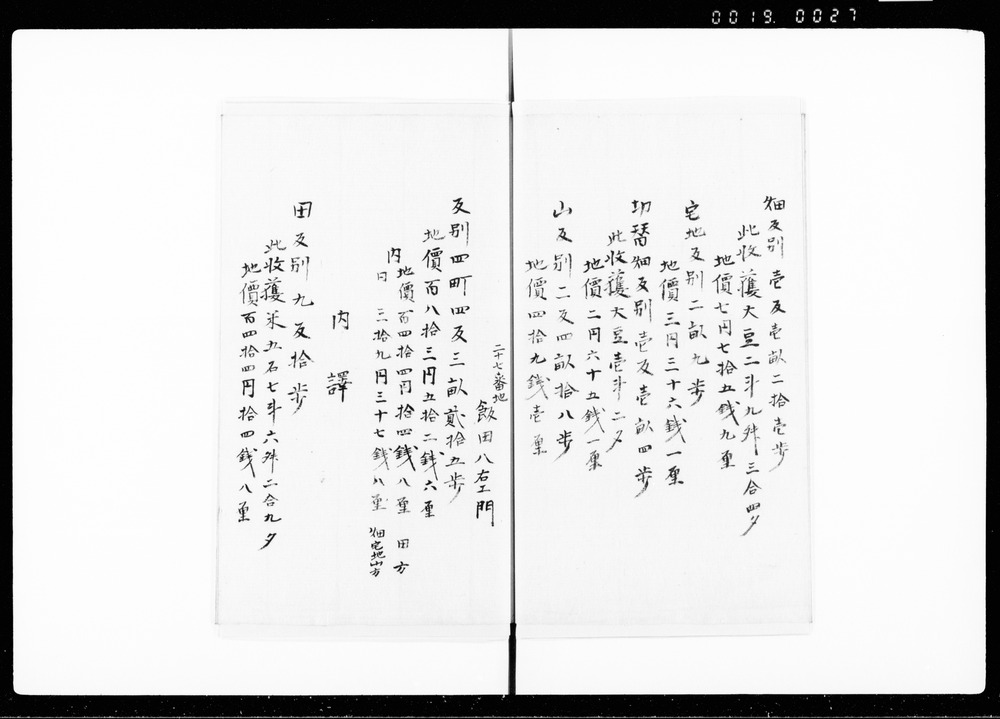 0019. 0027
畑反別壱反壱畝二拾壱歩
此收獲大豆二斗九舛三合四夕
地價七円七拾五銭九厘
宅地反別二畝九歩
地價三円三十六銭一厘
切替畑反別壱反壱畝四歩
此收獲大豆壱斗二夕
地價二円六十五銭一厘
山反別二反四畝拾八歩
地價四拾九銭壱厘
二十七番地
飯田八右エ門
反別四町四反三畝貳拾五歩
地價百八拾三円五拾二銭六厘
内地價百四拾四円拾四銭八厘 田方
内日 三拾九円三十七銭八厘 畑宅地山方
内譯
田反別九反拾歩
此收獲米五石七斗六舛二合九夕
地價百四拾四円拾四銭八厘